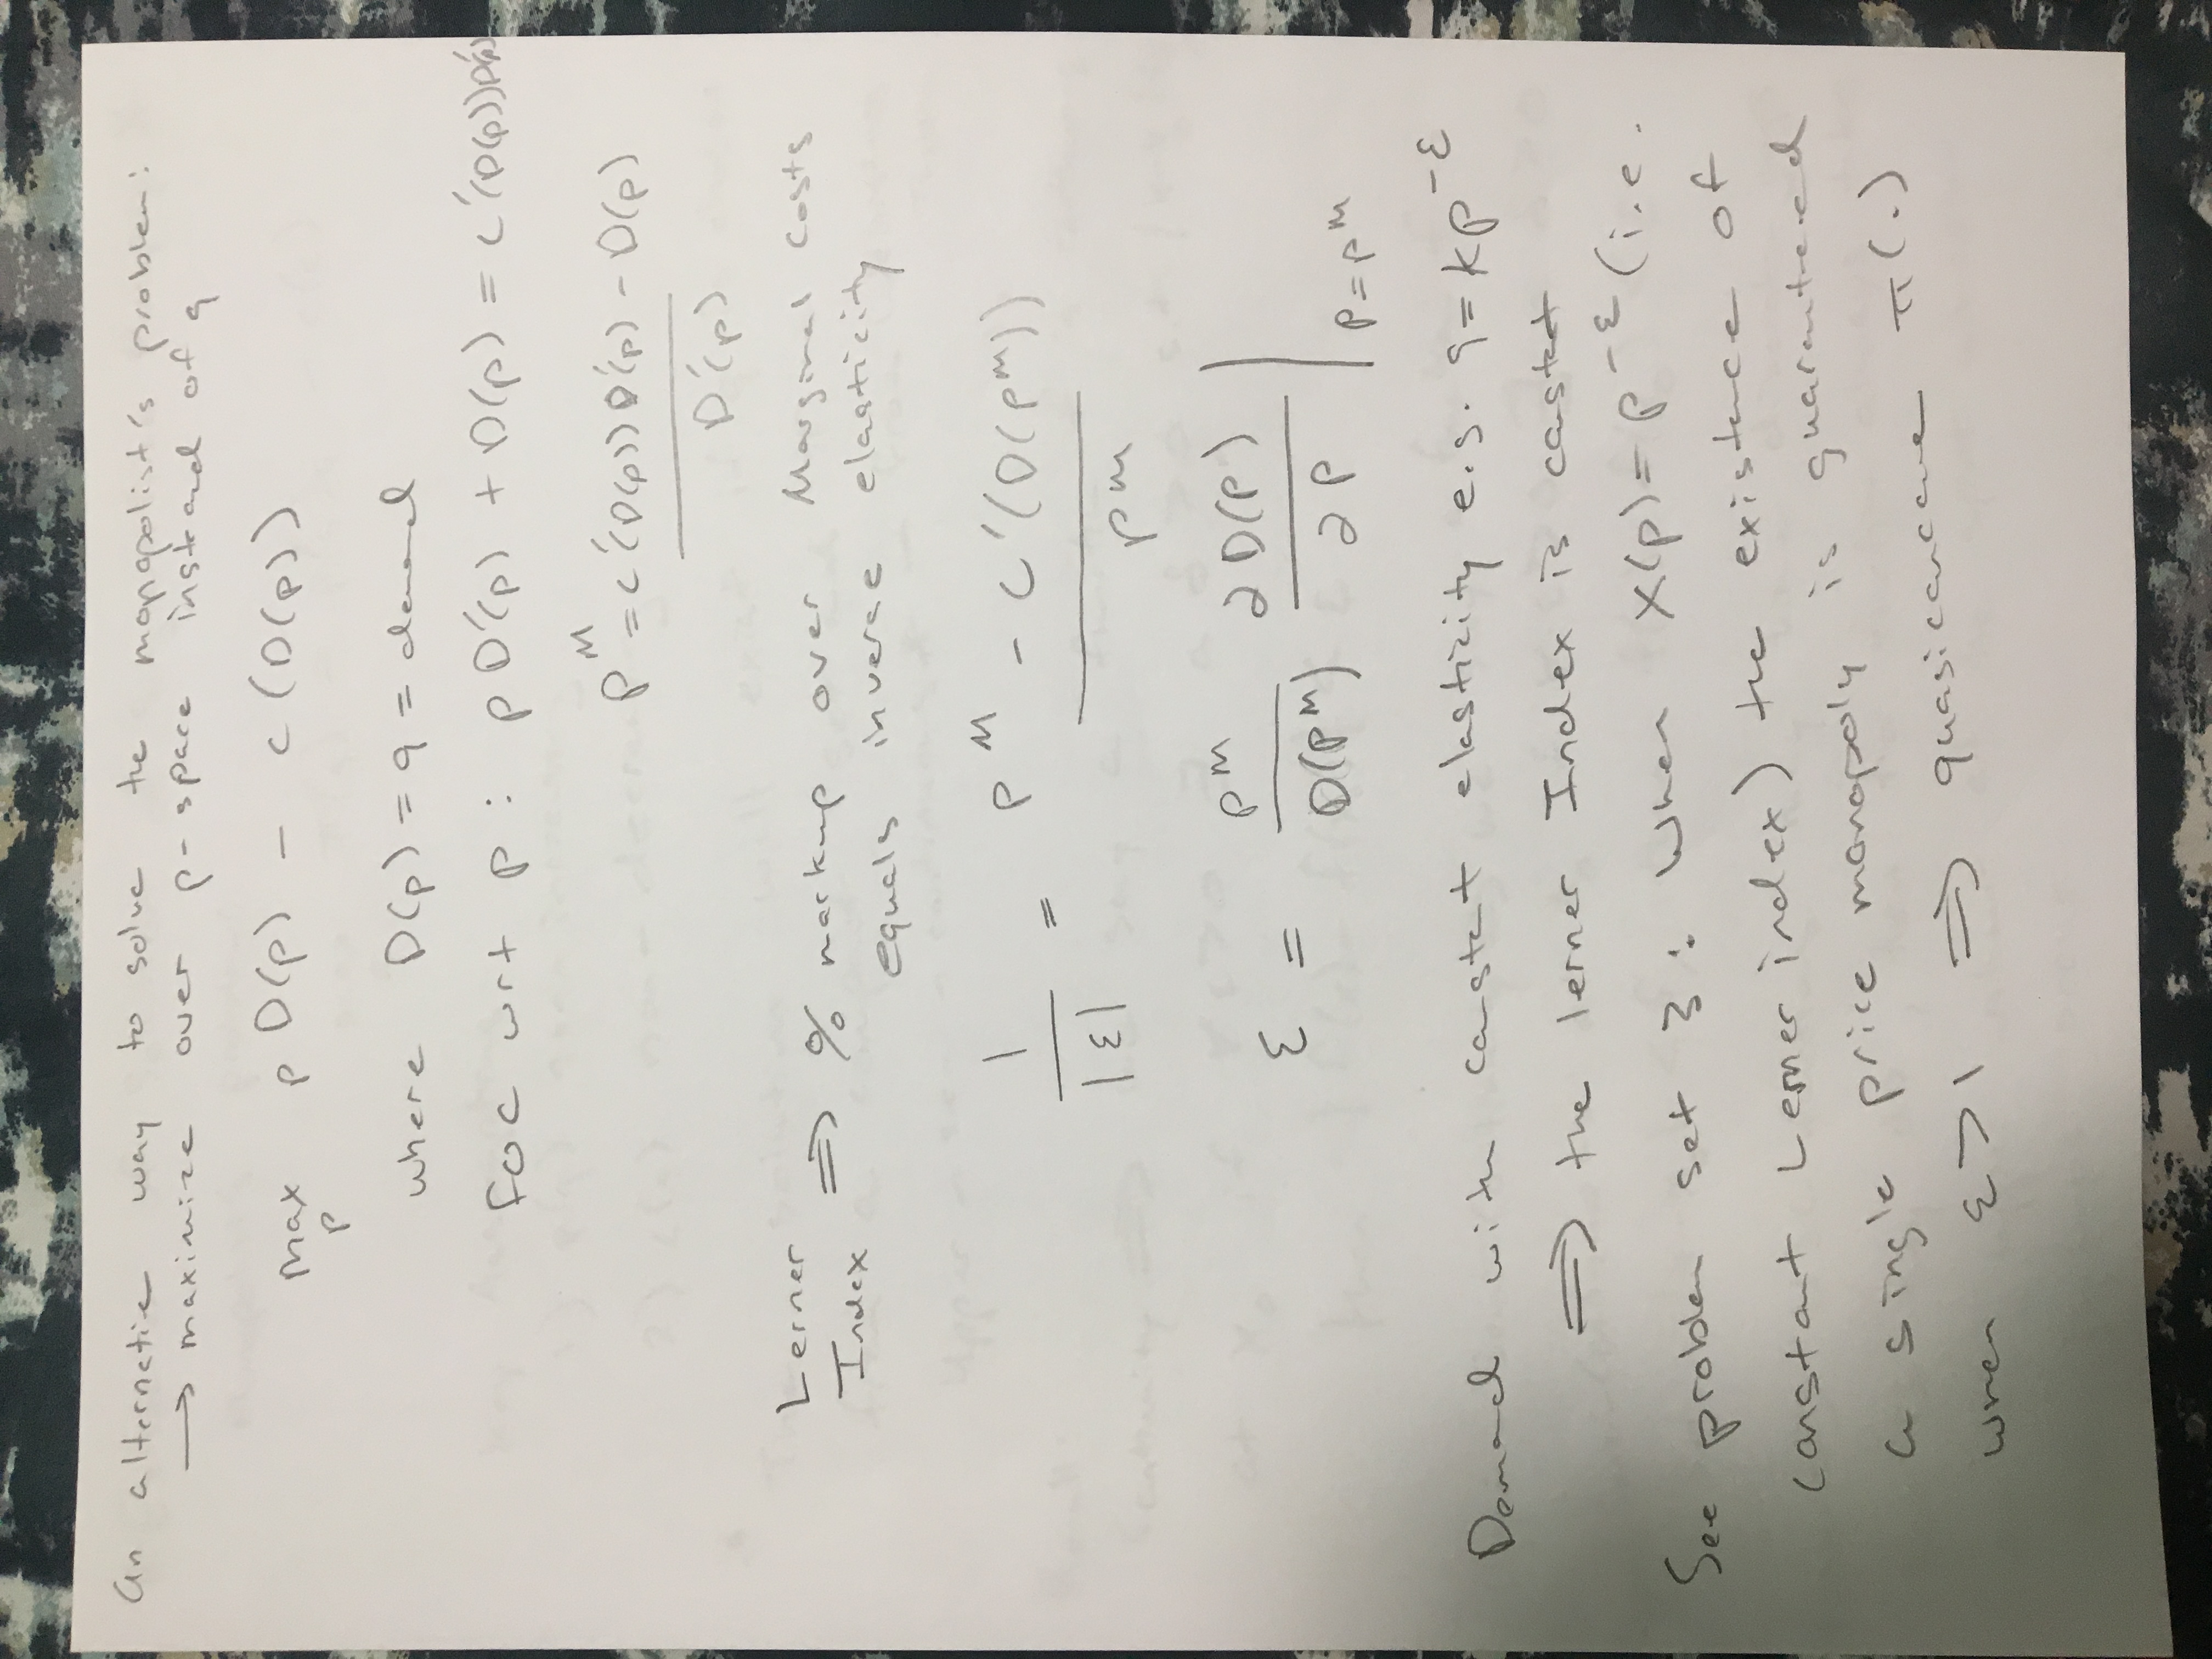 An alternatie way to solve the monopolist's problem:
→ maximize over p-space instead of q
max p D(p) - c (D(p))
p
where D(p) = q = demand
FOC wrt p : p D'(p) + D(p) = c'(D(p))D'(p)
P^M = c'(D(p)) D'(p) - D(p)
D'(p)
Lerner ⇒ % markup over Marginal costs
Index equals inverse elasticity
1 = P^M - c'(D(P^M))
|ε| P^M
ε = P^M/D(P^M) ∂D(P)/∂P | P=P^M
Demand with constant elasticity e.g. q = kp^-ε
⇒ the lerner Index is constant
See problem set 3 : When x(p) = p^-ε (i.e.
constant Lerner index) the existence of
a single price monopoly is guaranteed
when ε > 1 ⇒ quasiconcave π(.)